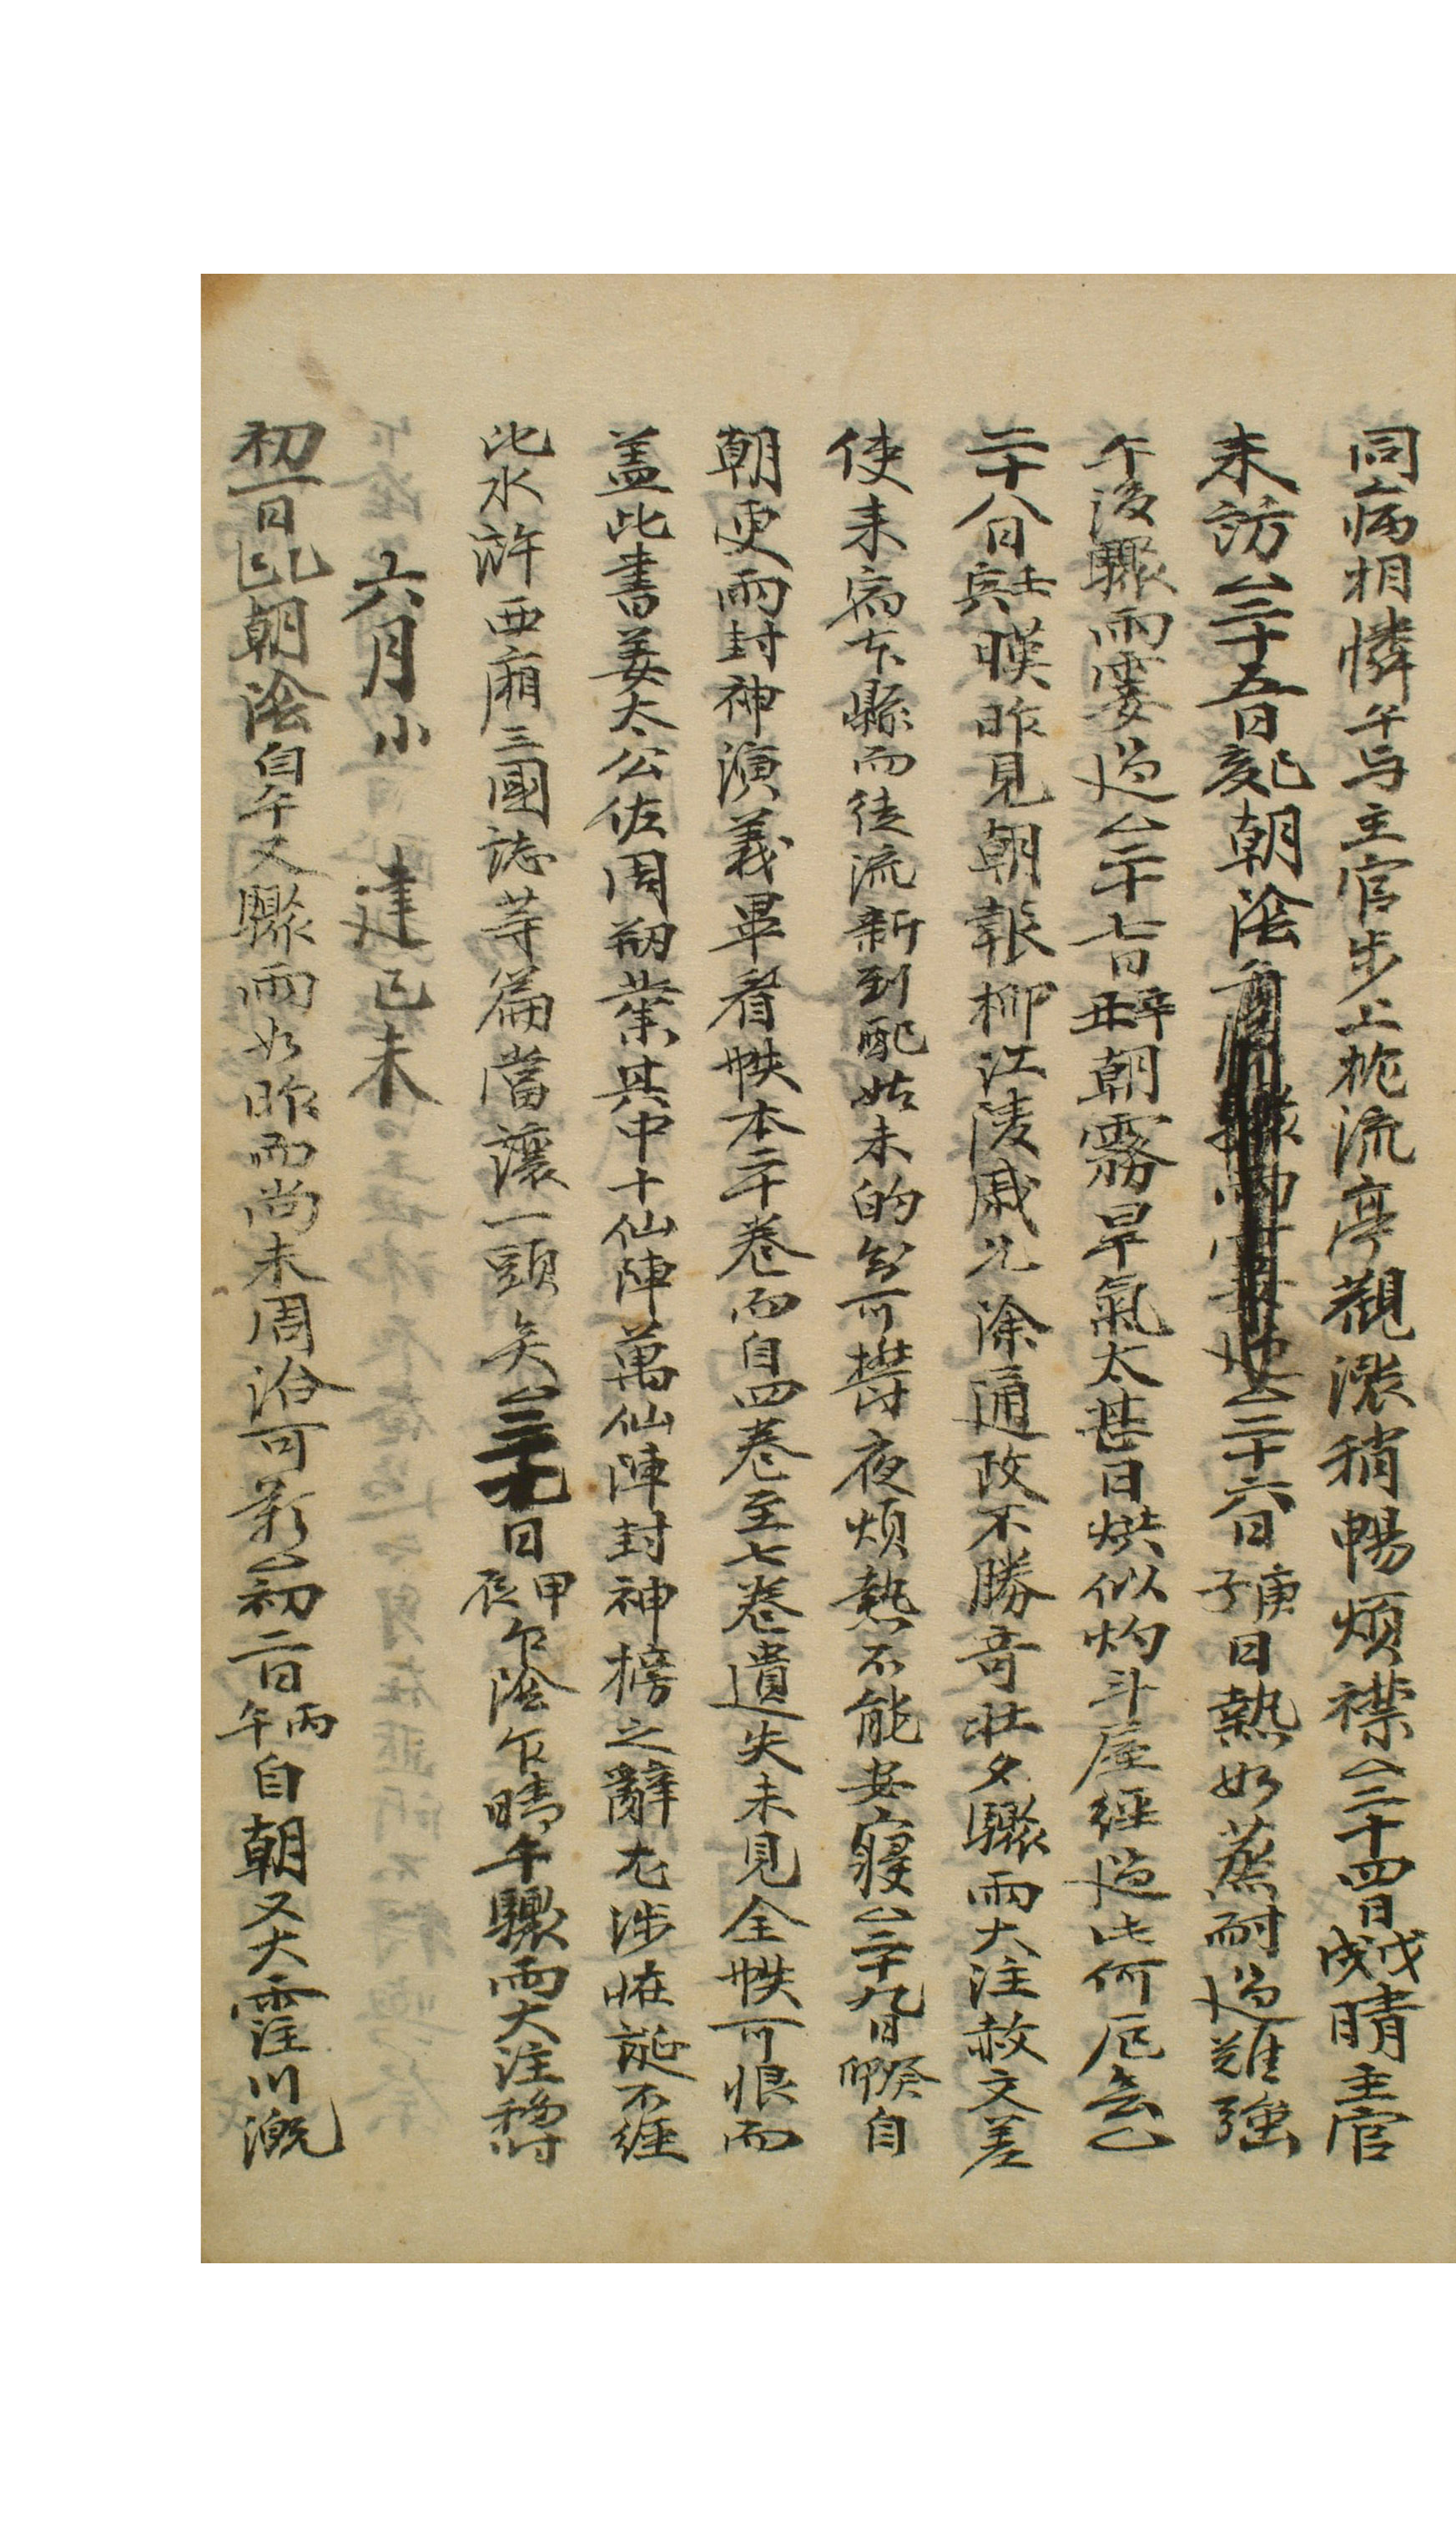 同病相憐午与主官步上枕流亭觀漲稍暢煩襟△二十四日戊戌晴主官
来訪△二十五日己亥朝陰△二十六日庚子日熱如蒸耐過難強
午後驟雨霎過△二十七日辛丑朝霧旱氣太甚日烘似灼斗屋經過此何厄会△
二十八日壬寅暵昨見朝報柳江陵戚兄除通政不勝奇壯夕驟雨大注赦文差
使来宿下縣而徒流新到配姑未的知可欝夜煩熱不能安寢△二十九日癸卯自
朝更雨封神演義畢看帙本二十卷而自四卷至七卷遺失未見全帙可恨而
盖此書姜太公佐周刱業其中十仙陣萬仙陣封神榜之辭尤涉恠誕不經
比水滸西廂三國誌等篇當讓一頭矣△三十日甲辰乍陰乍晴午驟雨大注稱
六月小 建己未
初一日乙巳朝陰自午又驟雨如昨而尚未周洽可歎△初二日丙午自朝又大霔川漑